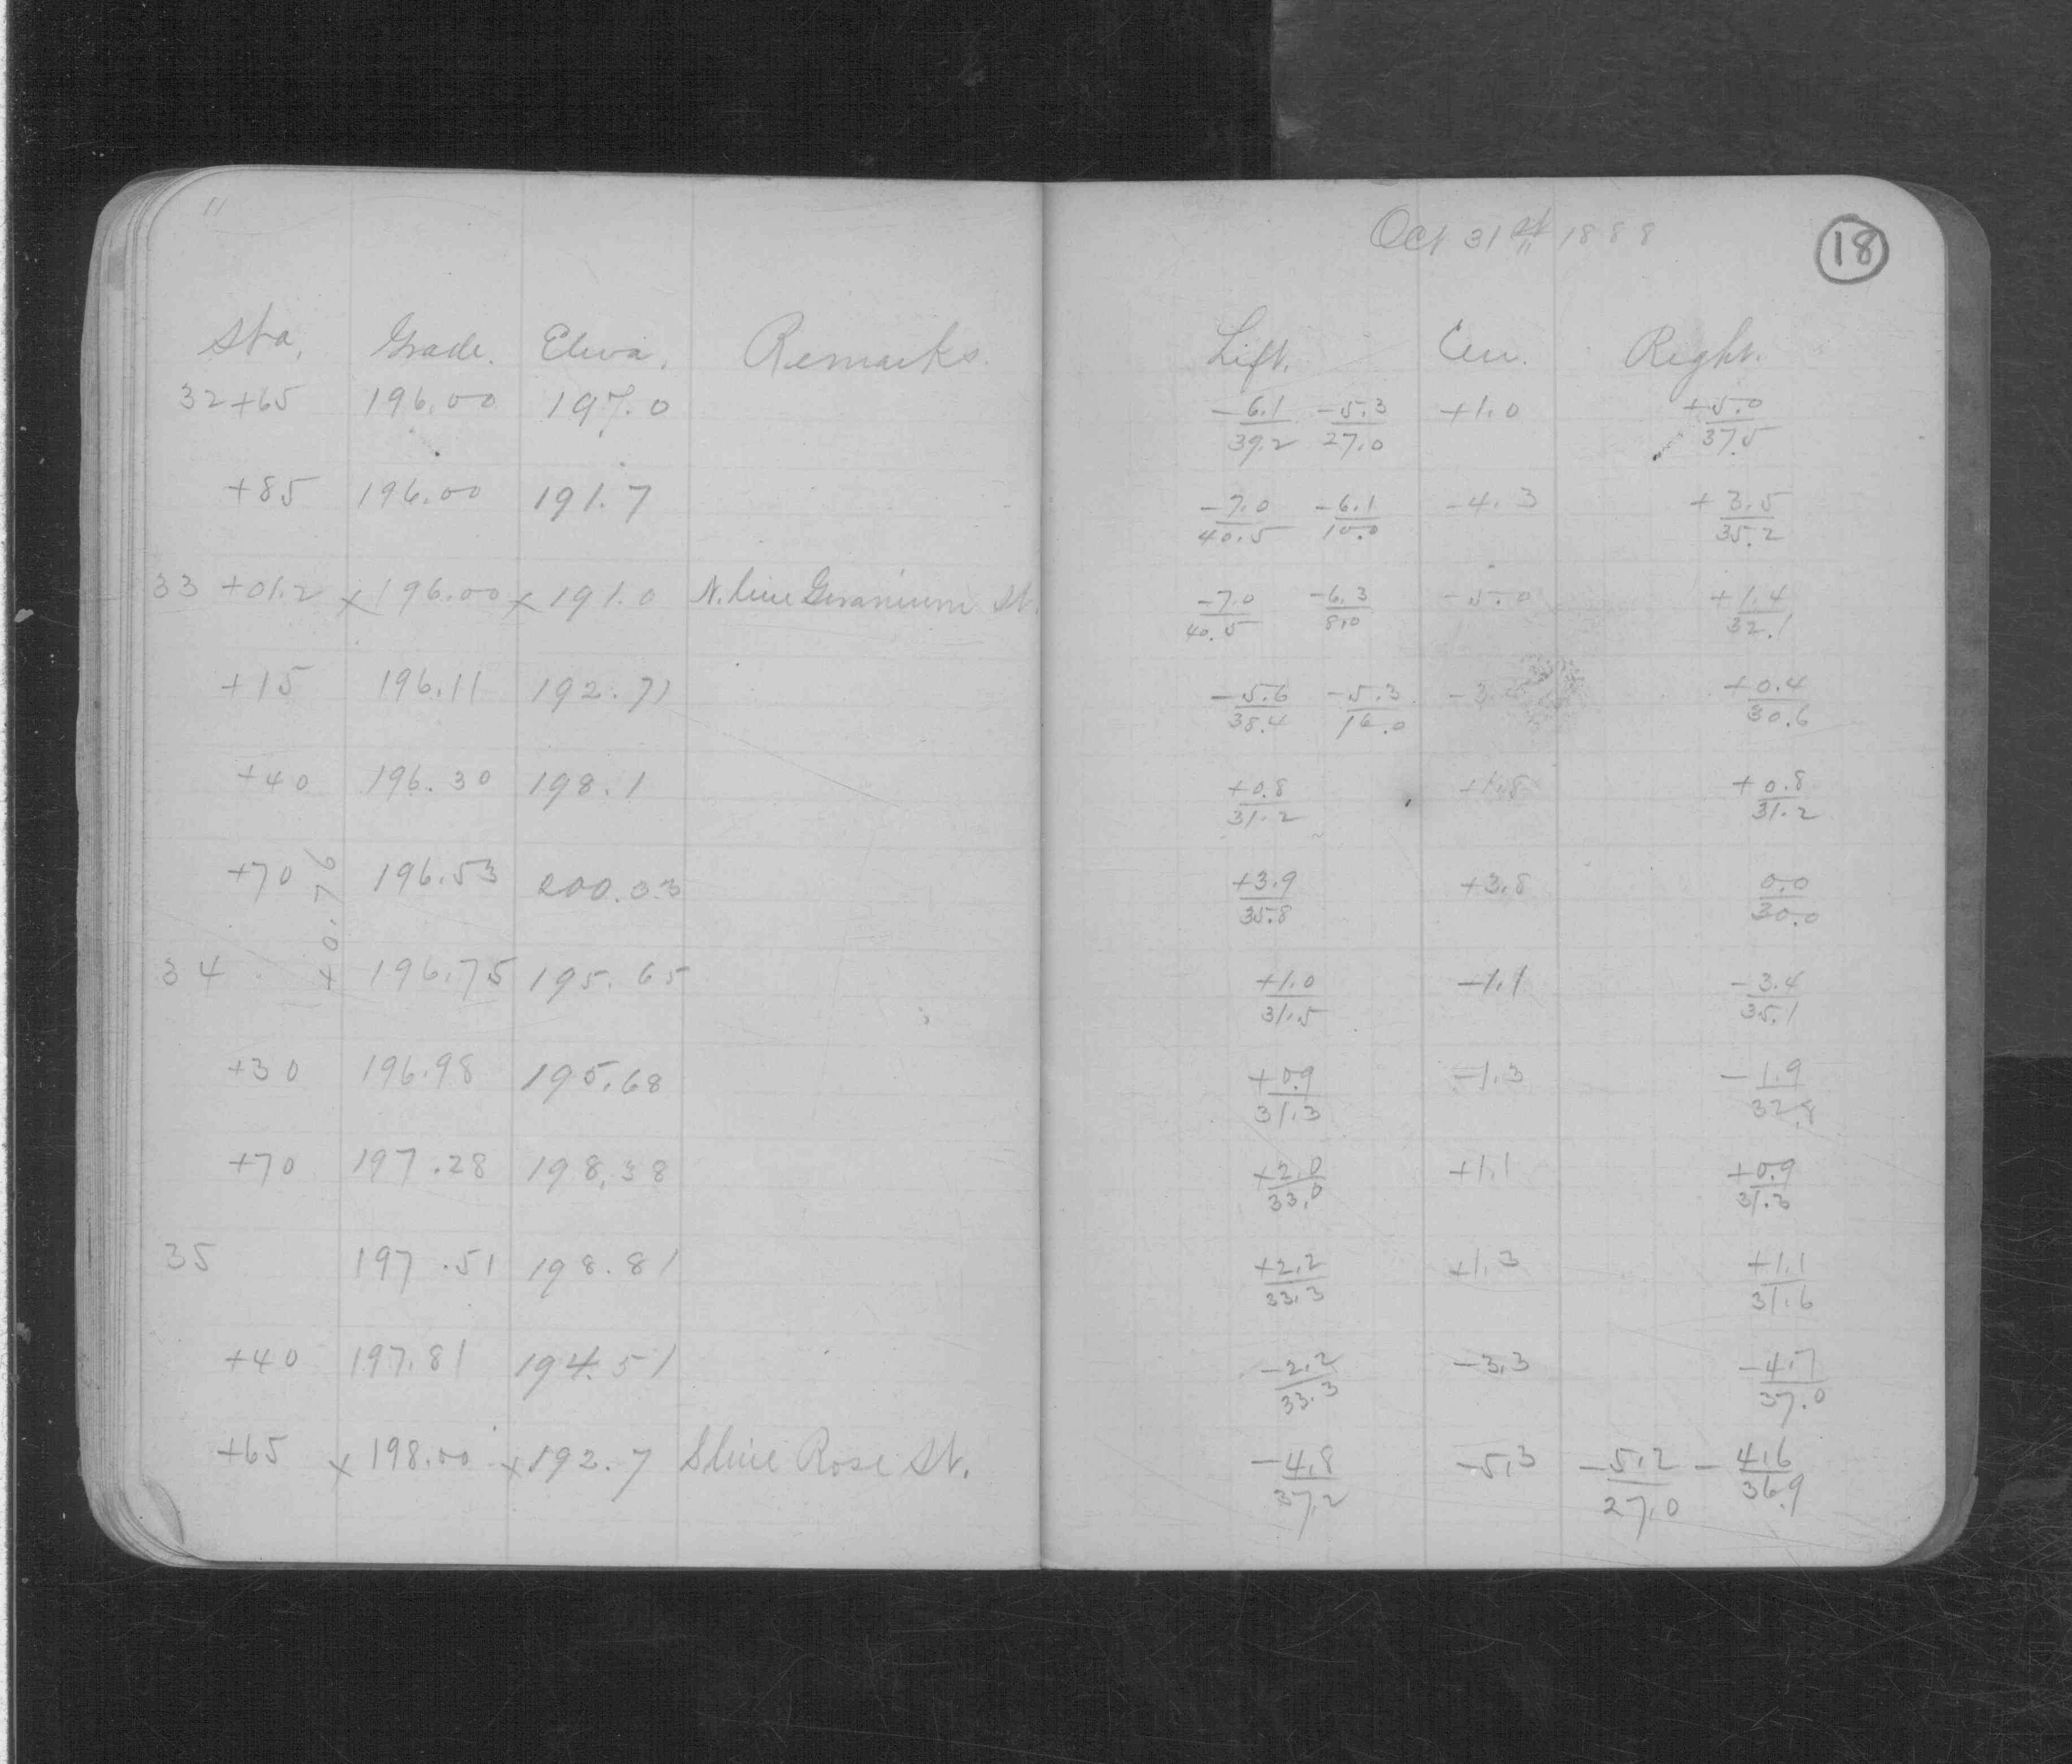 Oct 31st 1888
18
Sta. Grade. Eleva. Remarks. Left. Cen. Right.
32+65 196.00 197.0 -6.1/39.2 -5.3/27.0 +1.0 +5.0/37.5
+85 196.00 191.7 -7.0/40.5 -6.1/15.0 -4.3 +3.5/35.2
33 +01.2 x 196.00 x 191.0 N. line Geranium St. -7.0/40.5 -6.3/8.0 -5.0 +1.4/32.1
+15 196.11 192.71 -5.6/38.4 -5.3/16.0 -3. +0.4/30.6
+40 196.30 198.1 +0.8/31.2 +1.8 +0.8/31.2
+70 196.53 200.33 +3.9/35.8 +3.8 0.0/30.0
+0.76
34 196.75 195.65 +1.0/31.5 -1.1 -3.4/35.1
+30 196.98 195.68 +0.9/31.3 -1.3 -1.9/32.8
+70 197.28 198.38 +2.0/33.0 +1.1 +0.9/31.3
35 197.51 198.81 +2.2/33.3 +1.3 +1.1/31.6
+40 197.81 194.51 -2.2/33.3 -3.3 -4.7/37.0
+65 x 198.00 x 192.7 S line Rose St. -4.8/37.2 -5.3 -5.2/27.0 -4.6/36.9